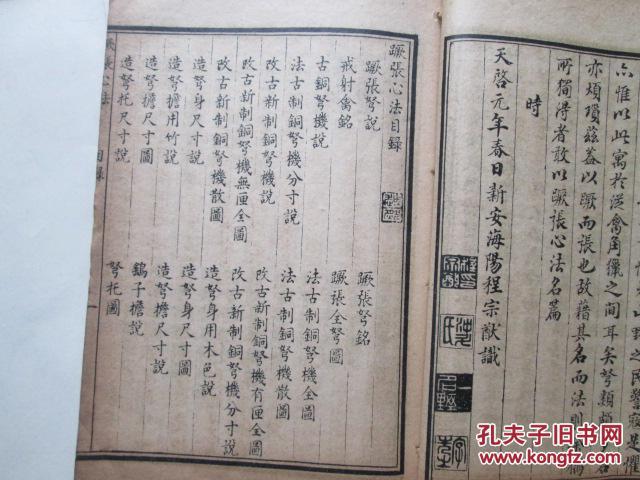 六惟以此寓於從禽角獵之間耳矣弩類
亦煩瓊茲蓋以蹶而張也故藉其名而法則
所獨淂者敢以蹶張心法名篇
時
天啓元年春日新安海陽程宗猷識
蹶張心法目錄
蹶張弩說
蹶張弩銘
戒射禽銘
蹶張全弩圖
古銅弩機說
法古制銅弩機全圖
法古制銅弩機分寸說
法古制銅弩機散圖
改古新制銅弩機說
改古新制銅弩機有匣全圖
改古新制銅弩機無匣全圖
改古新制銅弩機分寸說
改古新制銅弩機散圖
造弩身用木色說
造弩身尺寸說
造弩身尺寸圖
造弩擔用竹說
造弩擔尺寸說
造弩擔尺寸圖
鎢子擔說
造弩托尺寸說
弩托圖
張心法
目錄
一
孔夫子旧书网
www.kongfz.com